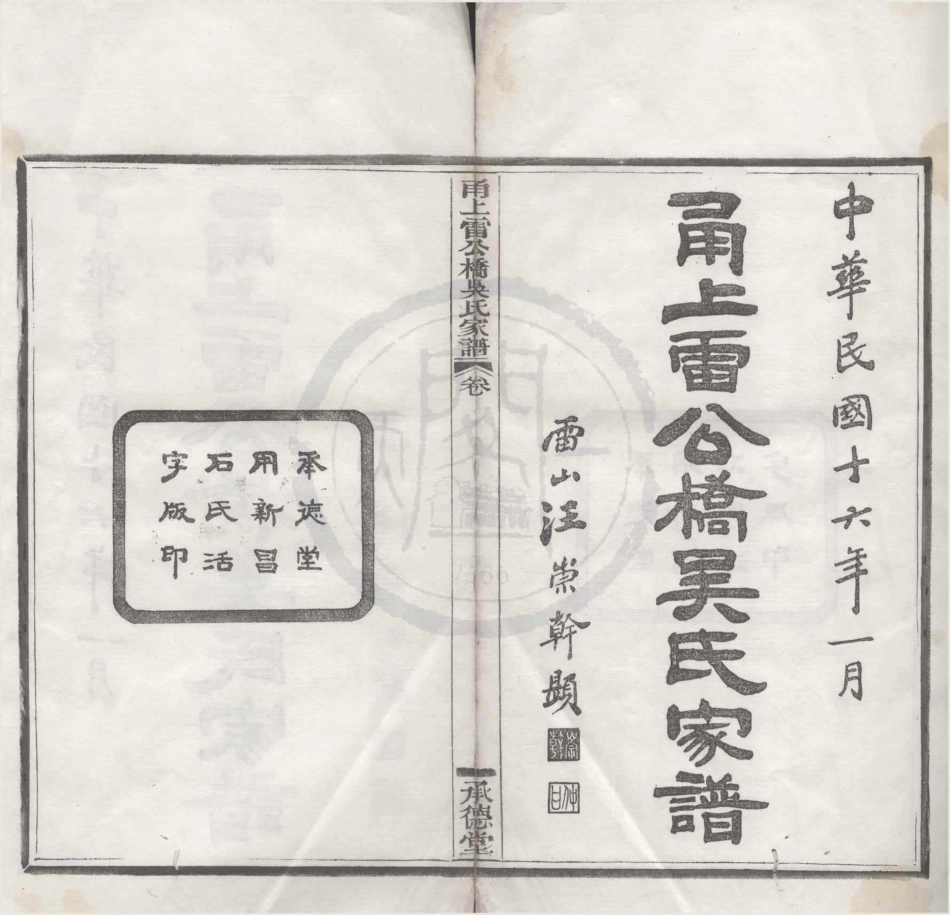 中華民國十六年一月
甬上雷公橋吴氏家譜
雷山汪崇幹題
崇幹
甬上雷公橋吳氏家譜 卷
一 承德堂
承德堂
用新昌
石氏活
字版印